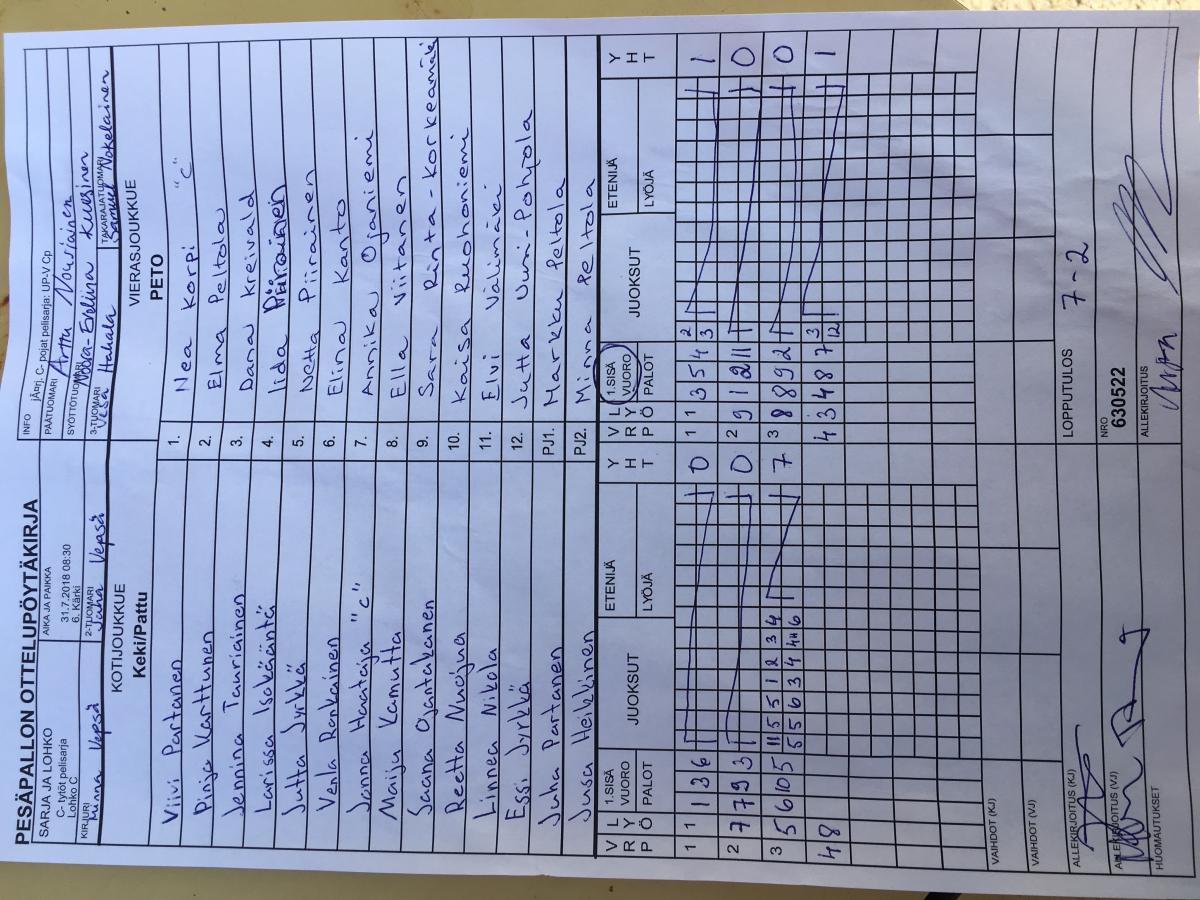 PESÄPALLON OTTELUPÖYTÄKIRJA
SARJA JA LOHKO
C- tytöt pelisarja
Lohko C
AIKA JA PAIKKA
31.7.2018 08:30
6. Kärki
INFO
jÃ¤rj. C- pojat pelisarja: UP-V Cp
PÄÄTUOMARI Arttu Nousiainen
SYÖTTÖTUOMARI Noora-Eveliina Kuusinen
KIRJURI Minna Vepsä
2-TUOMARI Jaana Vepsä
3-TUOMARI Vesa Hahala
TAKARAJATUOMARI Samuel Nokelainen
KOTIJOUKKUE
Keki/Pattu
VIERASJOUKKUE
PETO
Viivi Partanen 1. Nea Korpi "C"
Pinja Karttunen 2. Elma Peltola
Jemmina Tauriainen 3. Dana Kreivald
Larissa Isokääntä 4. Iida Piirainen
Jutta Jyrkkä 5. Netta Piirainen
Venla Ronkainen 6. Elina Kanto
Jonna Haataja "C" 7. Annika Ojaniemi
Maija Kamutta 8. Ella Viitanen
Saana Ojantakanen 9. Sara Rinta-Korkeamäki
Reetta Nuojua 10. Kaisa Ruohoniemi
Linnea Nikola 11. Elvi Välimäki
Essi Jyrkkä 12. Jutta Uuni-Pohjola
Juha Partanen PJ1. Markku Peltola
Jusa Heikkinen PJ2. Minna Peltola
V R P
L Y Ö
1.SISÄ VUORO
PALOT
JUOKSUT
ETENIJÄ
LYÖJÄ
Y H T
V R P
L Y Ö
1.SISÄ VUORO
PALOT
JUOKSUT
ETENIJÄ
LYÖJÄ
Y H T
1 1 1 3 6 0 1 1 3 5 4 2 3 1
2 7 7 9 3 0 2 9 1 2 11 0
3 5 6 10 5 11 5 5 1 2 3 4 7 3 8 8 9 2 0
5 5 6 3 4 4H 6
4 8 4 3 4 8 7 3 12 1
VAIHDOT (KJ)
VAIHDOT (VJ)
LOPPUTULOS 7-2
ALLEKIRJOITUS (KJ)
ALLEKIRJOITUS (VJ)
NRO
630522
HUOMAUTUKSET
ALLEKIRJOITUS